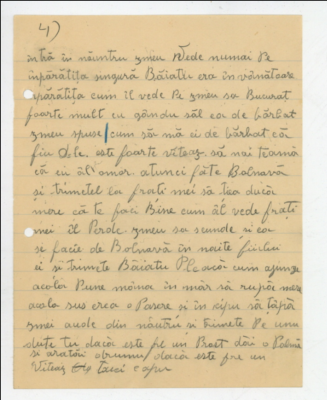 4)
intră în năuntru zmeu Vede numai Pe
inpărătița singură Băiatu era în vînătoare
inpărătița cum îl vede Pe zmeu sa Bucurat
foarte mult cu gîndu săl ea de bărbat
zmeu spuse cum să mă ei de bărbat că
fiu este foarte viteaz să nai teamă
că eu îl omor atunci făte Bolnavă
și trimetel la frati mei să tea ducă
mere că te faci Bine cum îl vede frați
mei îl Perde zmeu sa scunde și ea
se facie de Bolnavă în noite fiului
ei și trimete Băiatu Pleacă cum ajunge
acolo Pune mîna în măr să rupă mere
acolo sus erea o Pasere și în cipu să țăpă
zmei aude din năuntru și trimete Pe unu
dute tu dacă este Pe un Prost dăi o Palmă
si aratăi drumu dacă este Pe un
Viteaz taci